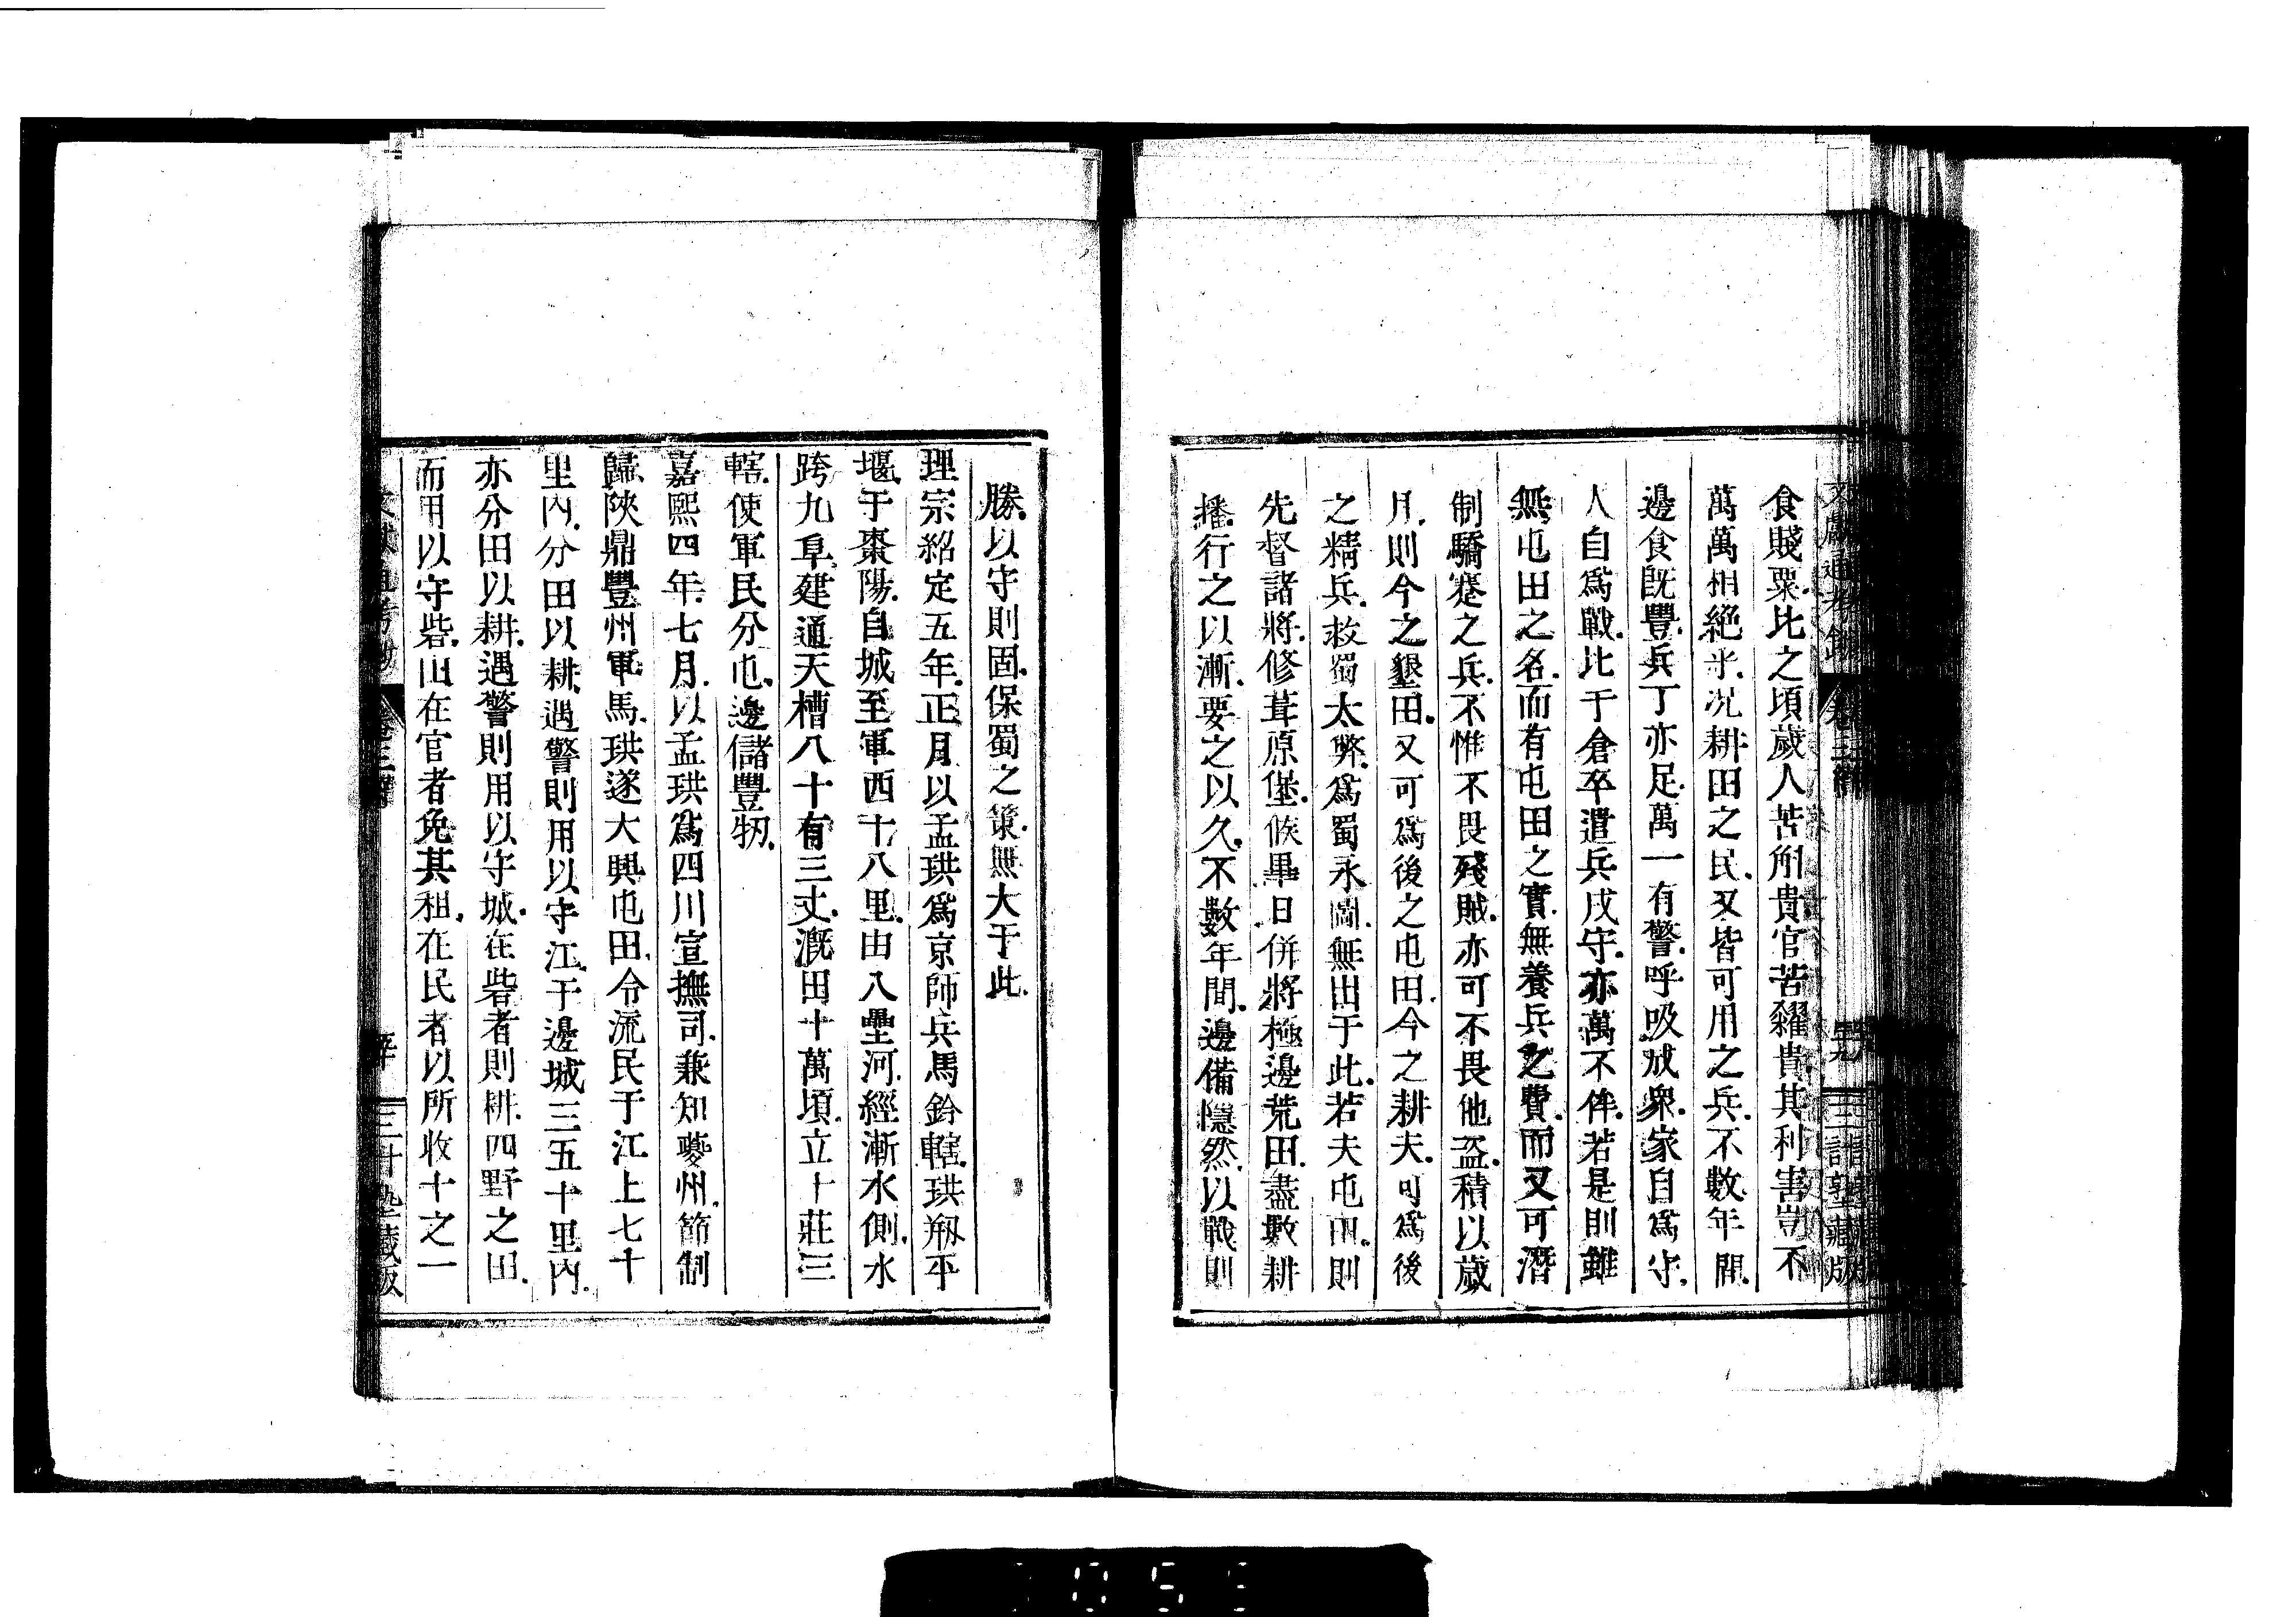 食賤粟比之頃歲人苦斛貴官苦糴貴其利害豈不
萬萬相絶乎況耕田之民又皆可用之兵不數年間
邊食既豐兵丁亦足萬一有警呼吸成衆家自爲守
人自爲戰比于倉卒遣兵戍守亦萬不侔若是則雖
無屯田之名而有屯田之實無養兵之費而又可潛
制驕蹇之兵不惟不畏殘賊亦可不畏他盗積以歲
月則今之墾田又可爲後之屯田今之耕夫可爲後
之精兵救蜀太弊爲蜀永圖無出于此若夫屯田則
先督諸將修葺原堡候畢日併將極邊荒田盡數耕
播行之以漸要之以久不數年間邊備隱然以戰則
勝以守則固保蜀之策無大于此
理宗紹定五年正月以孟珙爲京師兵馬鈐轄珙剏平
堰于棗陽自城至軍西十八里由八壘河經漸水側水
跨九阜建通天槽八十有三丈漑田十萬頃立十莊三
轄使軍民分屯邊儲豐牣
嘉熙四年七月以孟珙爲四川宣撫司兼知夔州節制
歸陝鼎豐州軍馬珙遂大興屯田令流民于江上七十
里內分田以耕遇警則用以守江于邊城三五十里內
亦分田以耕遇警則用以守城在砦者則耕四野之田
而用以守砦田在官者免其租在民者以所收十之一